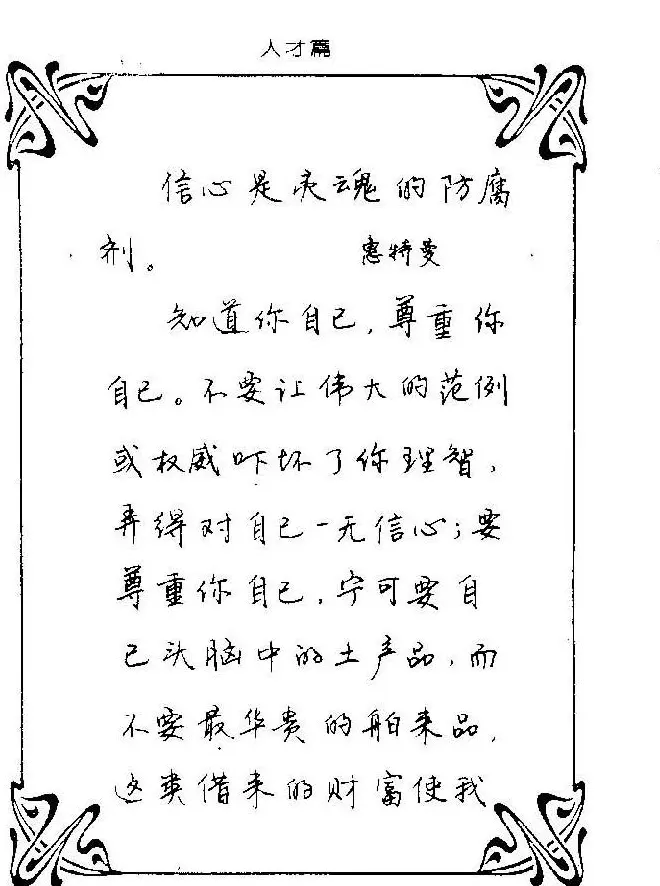 人才篇
信心是灵魂的防腐
剂。 惠特曼
知道你自己，尊重你
自己。不要让伟大的范例
或权威吓坏了你理智，
弄得对自己一无信心；要
尊重你自己，宁可要自
己头脑中的土产品，而
不要最华贵的舶来品，
这类借来的财富使我